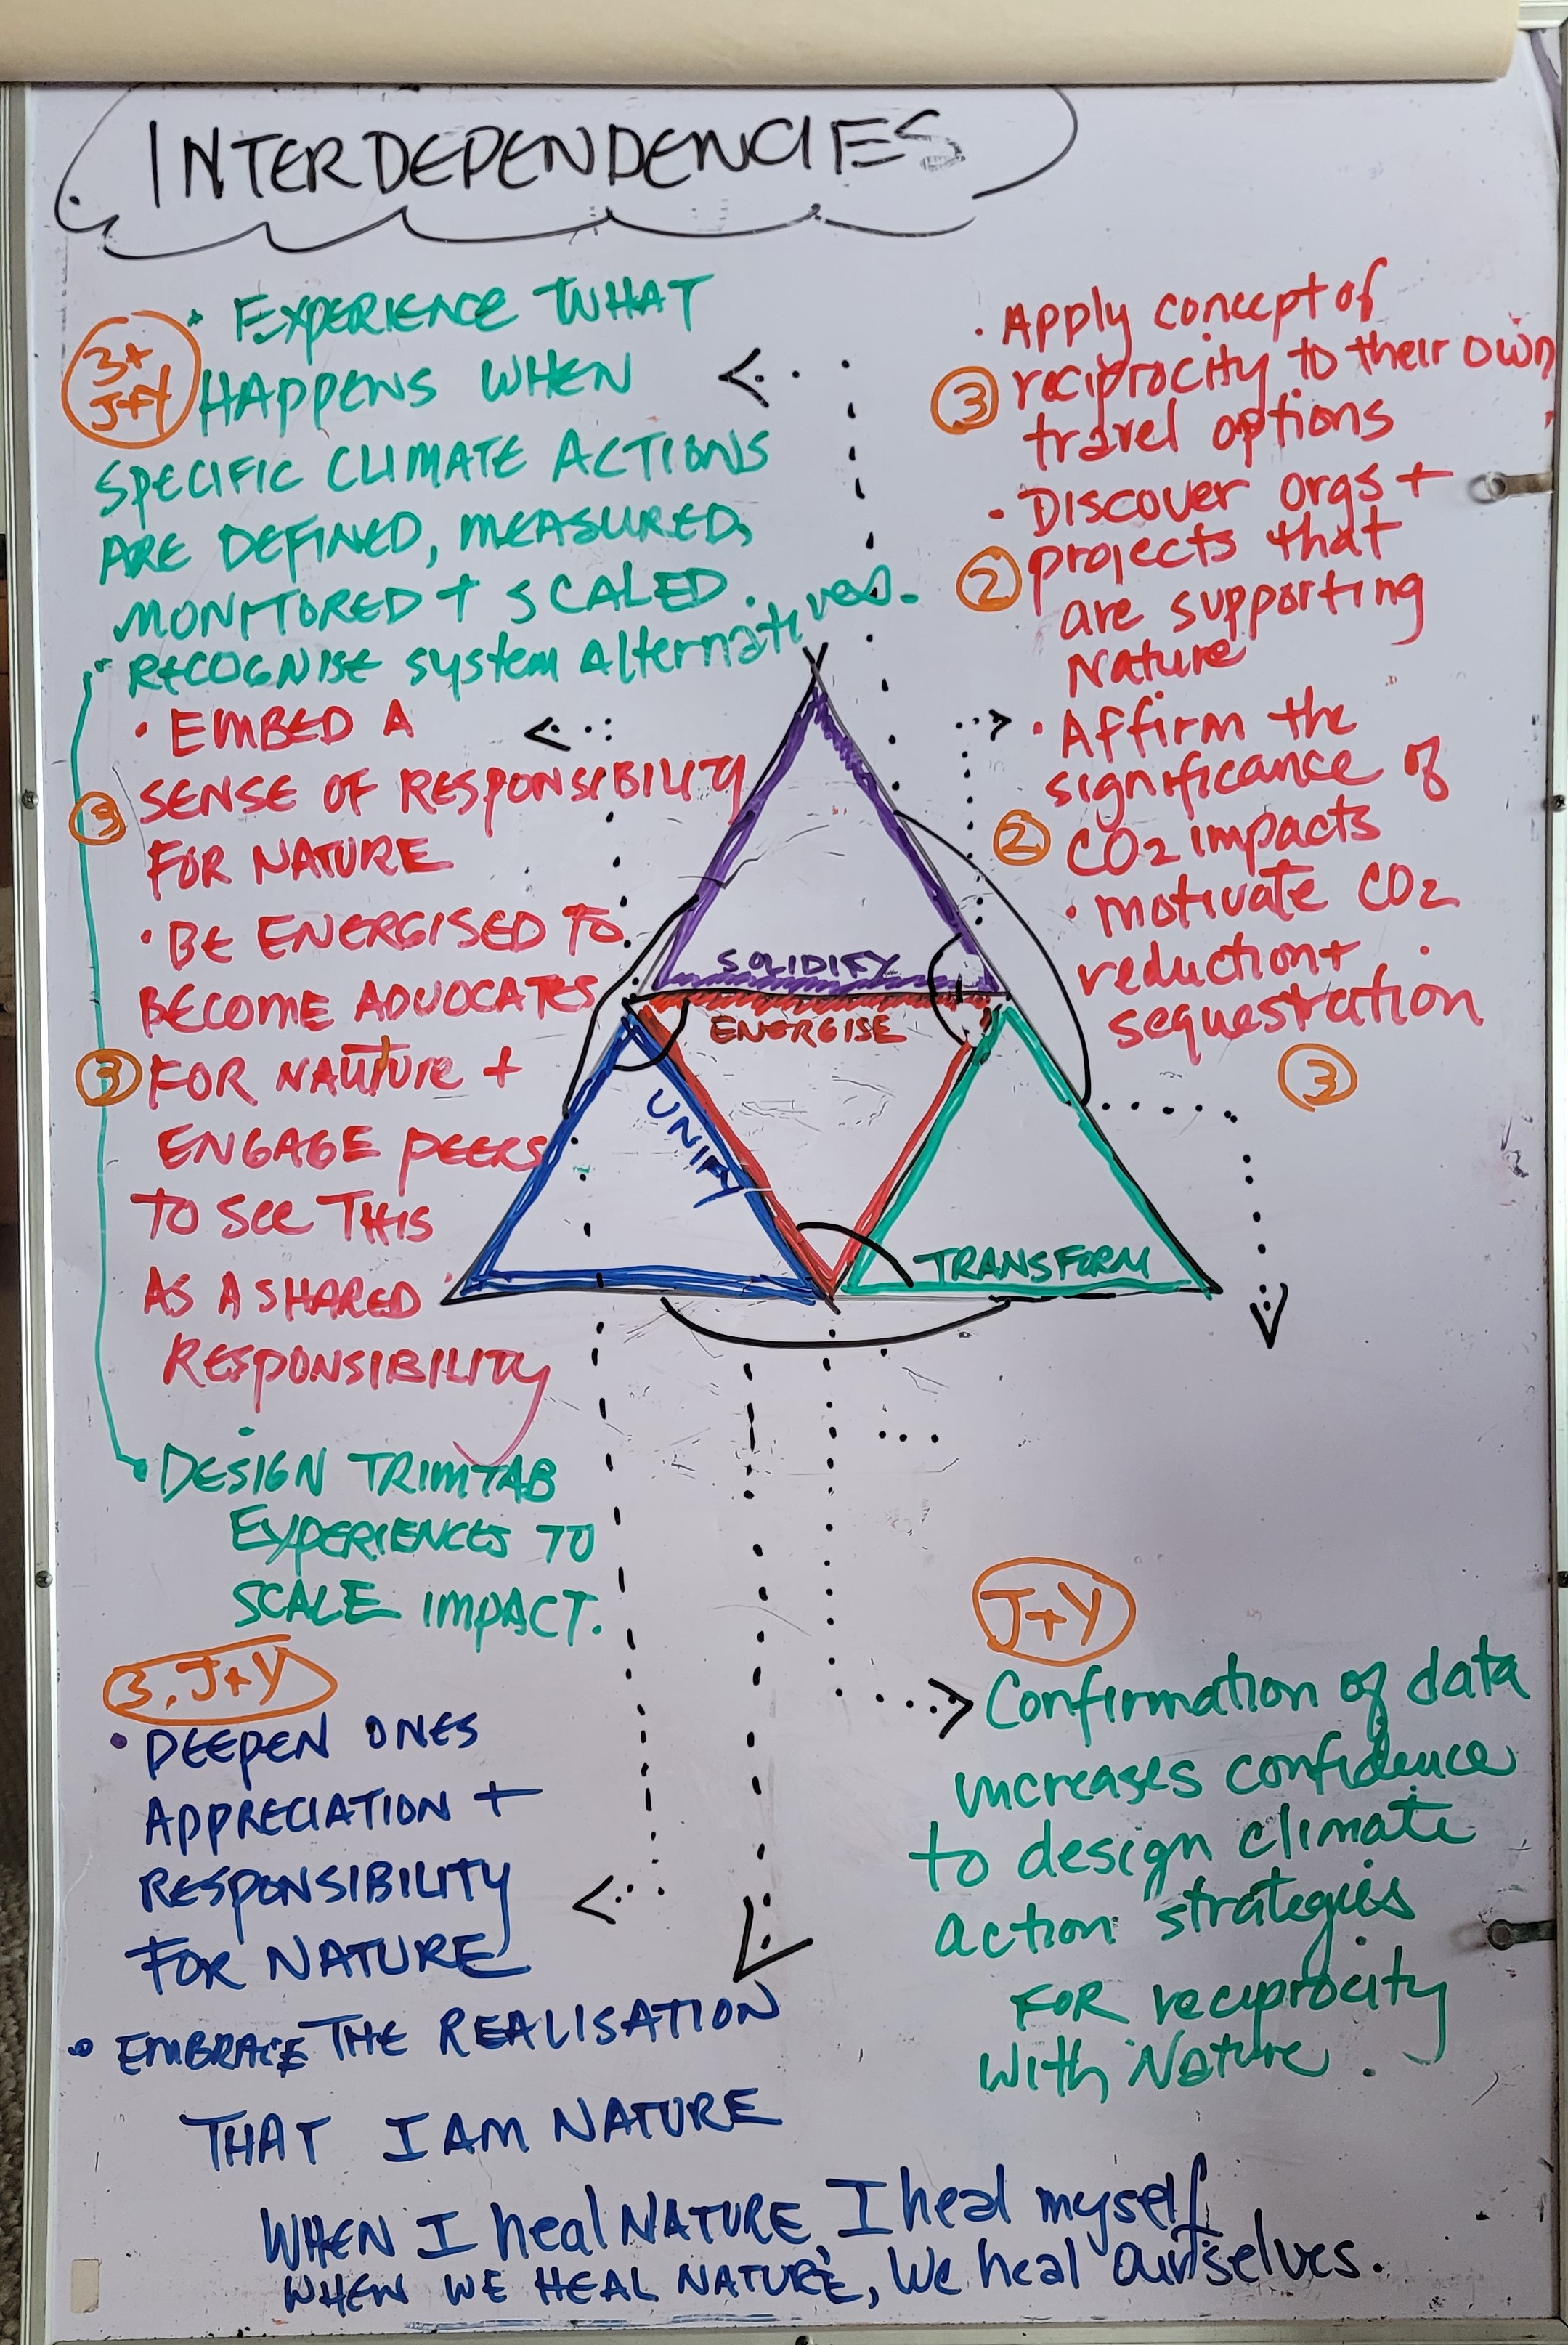 INTERDEPENDENCIES
3+
J+Y
• EXPERIENCE WHAT
HAPPENS WHEN
SPECIFIC CLIMATE ACTIONS
ARE DEFINED, MEASURED,
MONITORED + SCALED.
• RECOGNISE system Alternatives.
• EMBED A
3
SENSE OF RESPONSIBILITY
FOR NATURE
• BE ENERGISED TO
BECOME ADVOCATES
3
FOR NATUTURE +
ENGAGE PEERS
TO SEE THIS
AS A SHARED
RESPONSIBILITY
• DESIGN TRIMTAB
EXPERIENCES TO
SCALE IMPACT.
3, J+Y
• DEEPEN ONES
APPRECIATION +
RESPONSIBILITY
FOR NATURE
• EMBRACE THE REALISATION
THAT I AM NATURE
WHEN I heal NATURE, I heal myself
WHEN WE HEAL NATURE, We heal ourselves.
• Apply concept of
3
reciprocity to their own
travel options
• Discover orgs +
2
projects that
are supporting
Nature
• Affirm the
significance of
2
CO2 impacts
• motivate CO2
reduction +
sequestration
3
SOLIDIFY
ENERGISE
UNIFY
TRANSFORM
J+Y
Confirmation of data
increases confidence
to design climate
action strategies
FOR reciprocity
with Nature.